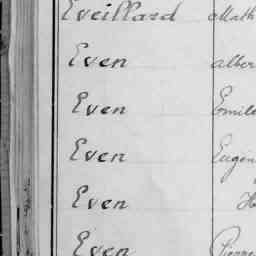 Eveillard Math
Even alber
Even Emile
Even Eugèn
Even H
Even Pierre